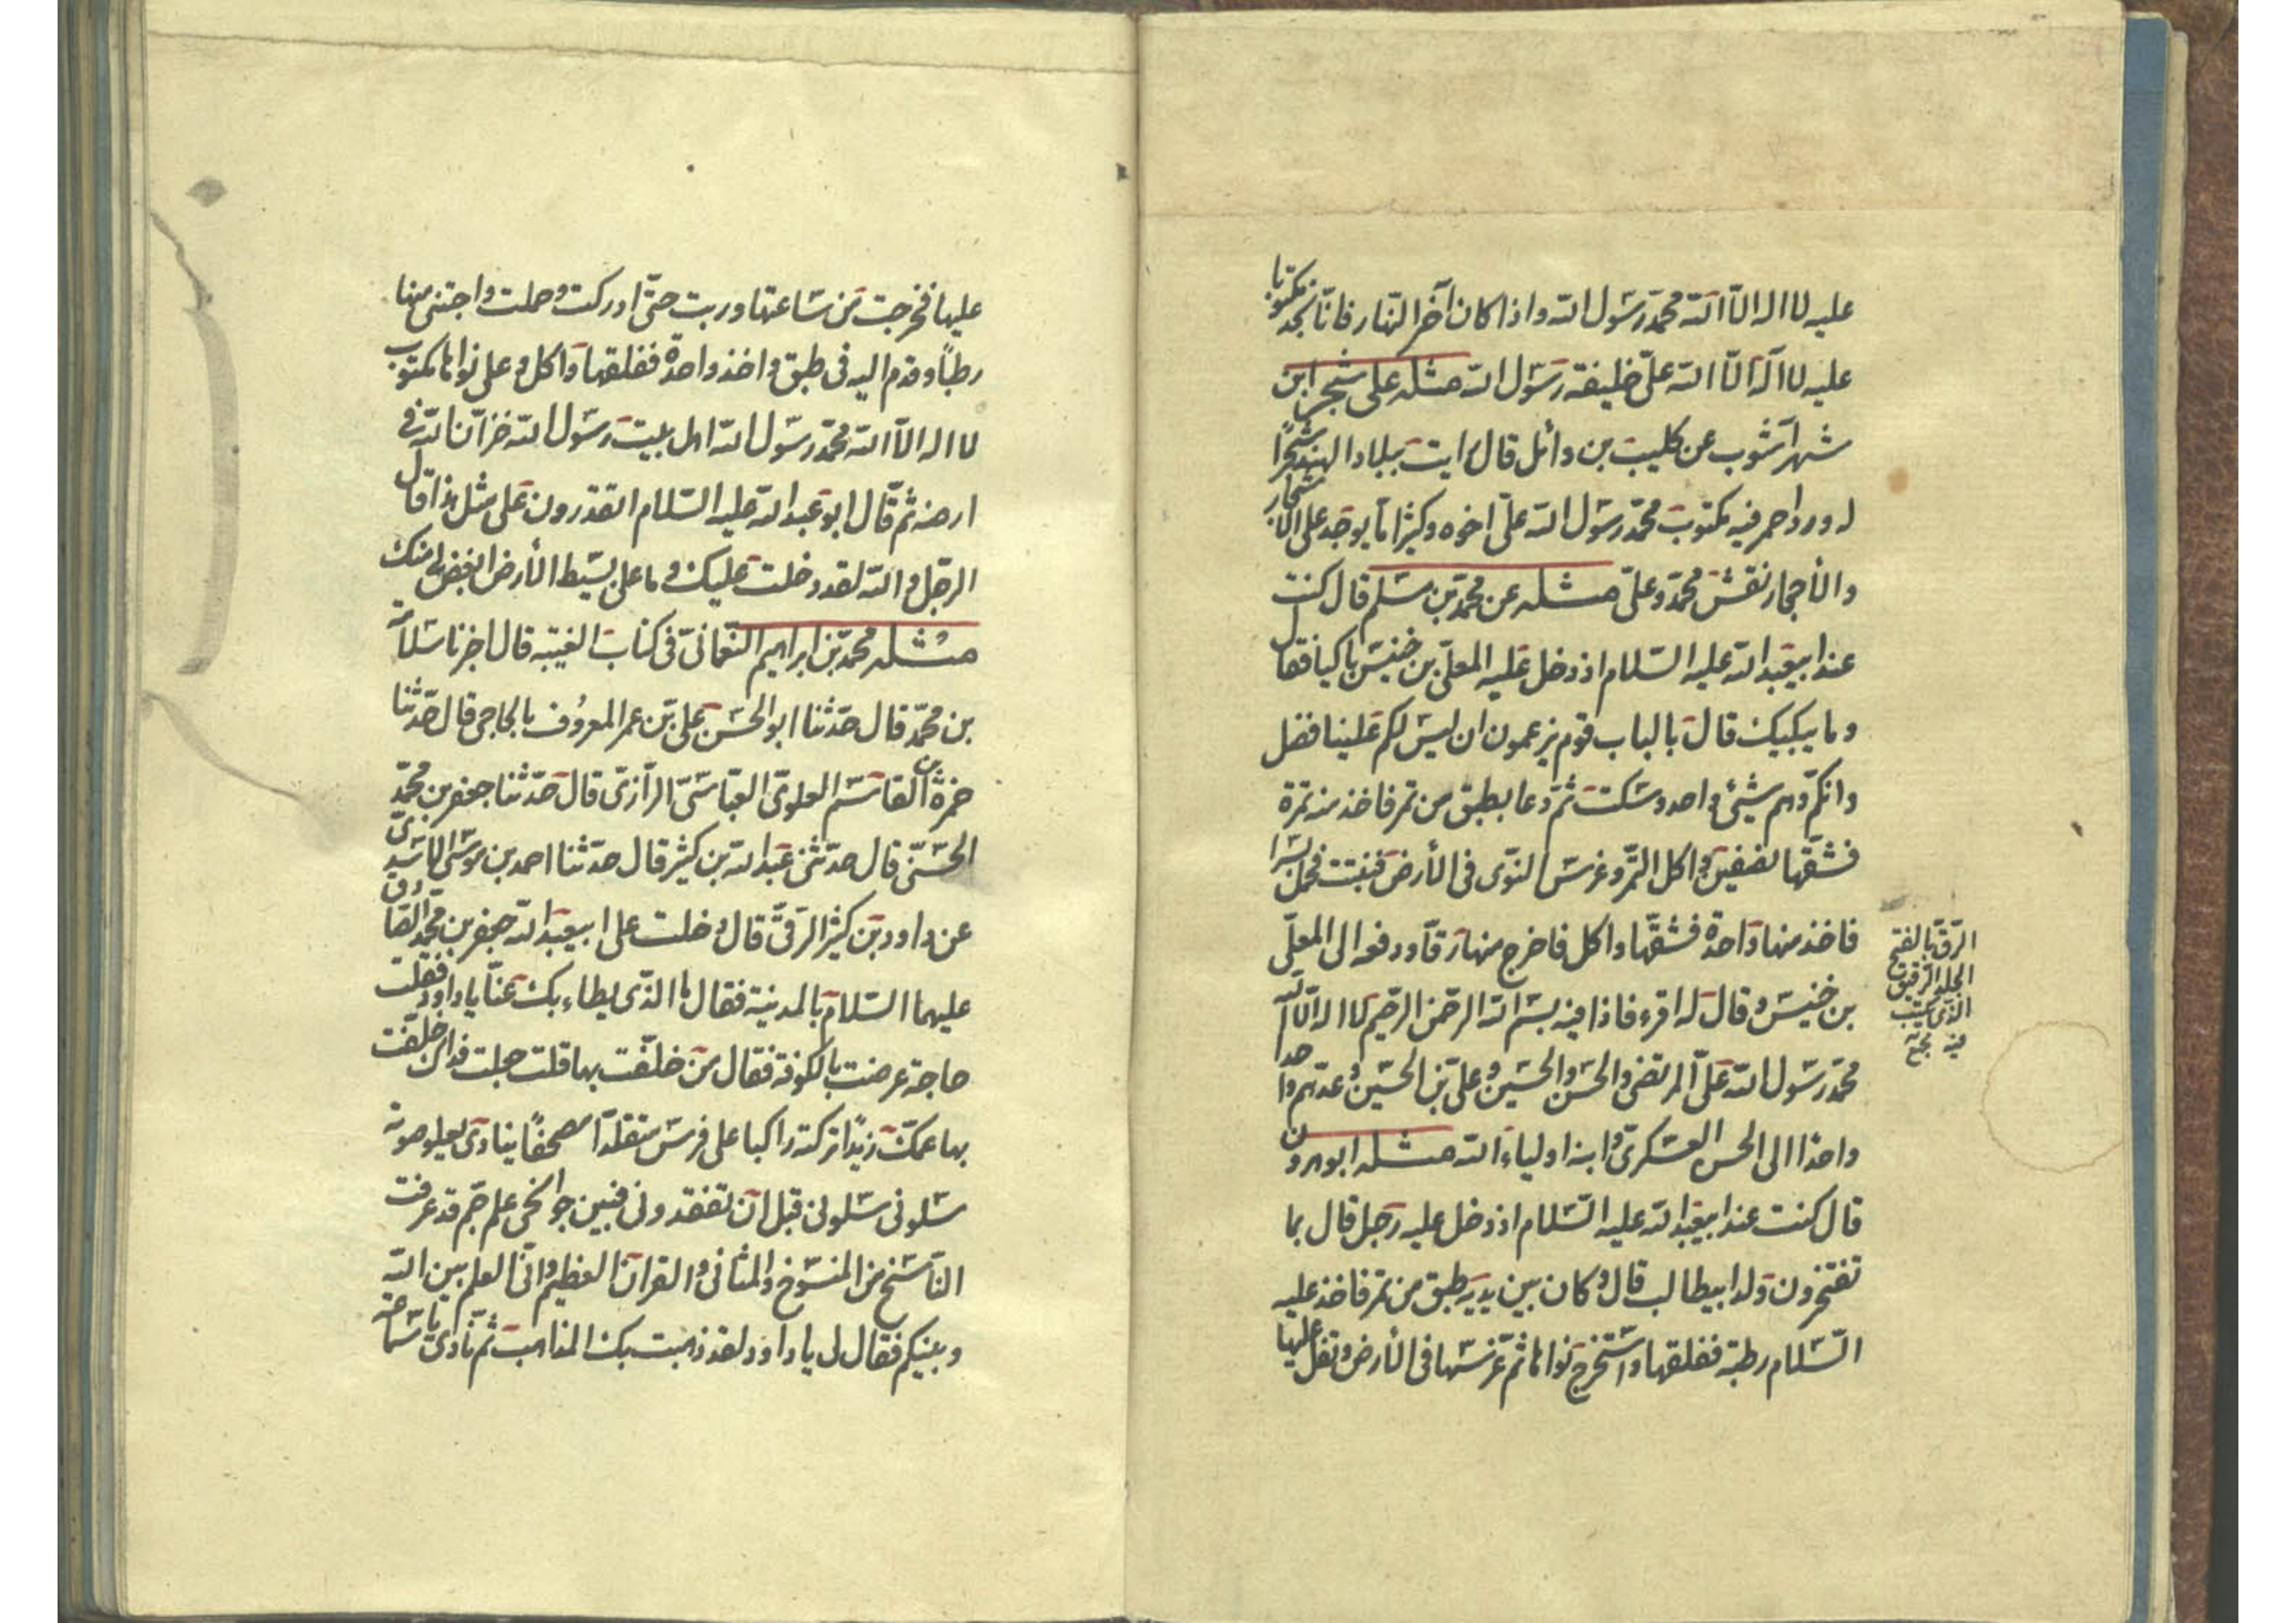 عليه لا اله الّا الله محمّد رسول الله واذا كان آخر النّهار فانّا نجد مكتوبا
عليه لا اله الّا الله علىّ خليفة رسول الله مثله على شجر ابن
شهر آشوب عن كليب بن وائل قال رايت ببلاد الهند شجرًا
له ورد احمر فيه مكتوب محمّد رسول الله علىّ اخوه وكثيرًا ما يوجد على الاشجار
والأحجار نقش محمّد وعلىّ مثله عن محمّد بن مسلم قال كنت
عند ابيعبد الله عليه السّلام اذ دخل عليه المعلّى بن خنيس باكيا فقال
وما يبكيك قال بالباب قوم يزعمون ان ليس لكم علينا فضل
وانكم وهم شيئ واحد وسكت ثم دعا بطبق من تمر فاخذ منه تمرة
فشقّها نصفين واكل التّمر وغرس النّوى فى الأرض فنبتت فحمل بسرا
فاخذ منها واحدة فشقّها واكل فاخرج منها رقّا ودفعه الى المعلّى
بن خنيس وقال له اقرء فاذا فيه بسم الله الرحمن الرحيم لا اله الّا الله
محمّد رسول الله علىّ المرتضى والحسن والحسين وعلى بن الحسين وعدّهم واحدا
واحدا الى الحسن العسكرى وابنه اولياء الله مثله ابو هرون
قال كنت عند ابيعبد الله عليه السّلام اذ دخل عليه رجل قال بما
تفتخرون ولد ابيطالب قال وكان بين يديه طبق من تمر فاخذ عليه
السّلام رطبة ففلقها واستخرج نواها ثمّ غرسها فى الأرض وتفل عليها
الرّق بالفتح
الجلد الرقيق
الذى يكتب
فيه
عليها فخرجت من ساعتها وربت حتّى ادركت وحملت واجتنى منها
رطبًا وقدم اليه فى طبق واخذ واحدة ففلقها واكل وعلى نواها مكتوب
لا اله الّا الله محمّد رسول الله اهل بيت رسول الله خزّان الله فى
ارضه ثم قال ابو عبد الله عليه السّلام اتقدرون على مثل هذا قال
الرجل والله لقد دخلت عليك وما على بسيط الأرض ابغض الىّ منك
مثله محمّد بن ابراهيم النّعمانى فى كتاب الغيبة قال اخبرنا سلامة
بن محمّد قال حدّثنا ابو الحسن على بن عمر المعروف بالحاجى قال حدّثنا
حمزة بن القاسم العلوى العبّاسى الرّازى قال حدّثنا جعفر بن محمّد
الحسنى قال حدثنى عبد الله بن كثير قال حدثنا احمد بن موسى الاسدىّ
عن داود بن كثير الرقّى قال دخلت على ابيعبد الله جعفر بن محمّد الصّادق
عليهما السّلام بالمدينة فقال ما الذّى ابطاء بك عنّا يا داود فقلت
حاجة عرضت بالكوفة فقال من خلّفت بها قلت جعلت فداك خلّفت
بها عمّك زيدًا تركته راكبا على فرس متقلدا مصحفًا ينادى بعلو صوته
سلونى سلونى قبل ان تفقدونى فبين جوانحى علم جم قد عرفت
النّاسخ من المنسوخ والمثانى والقران العظيم وانّى العلم بين الله
وبينكم فقال لى يا داود لقد ذهبت بك المذاهب ثم نادى يا سماعة